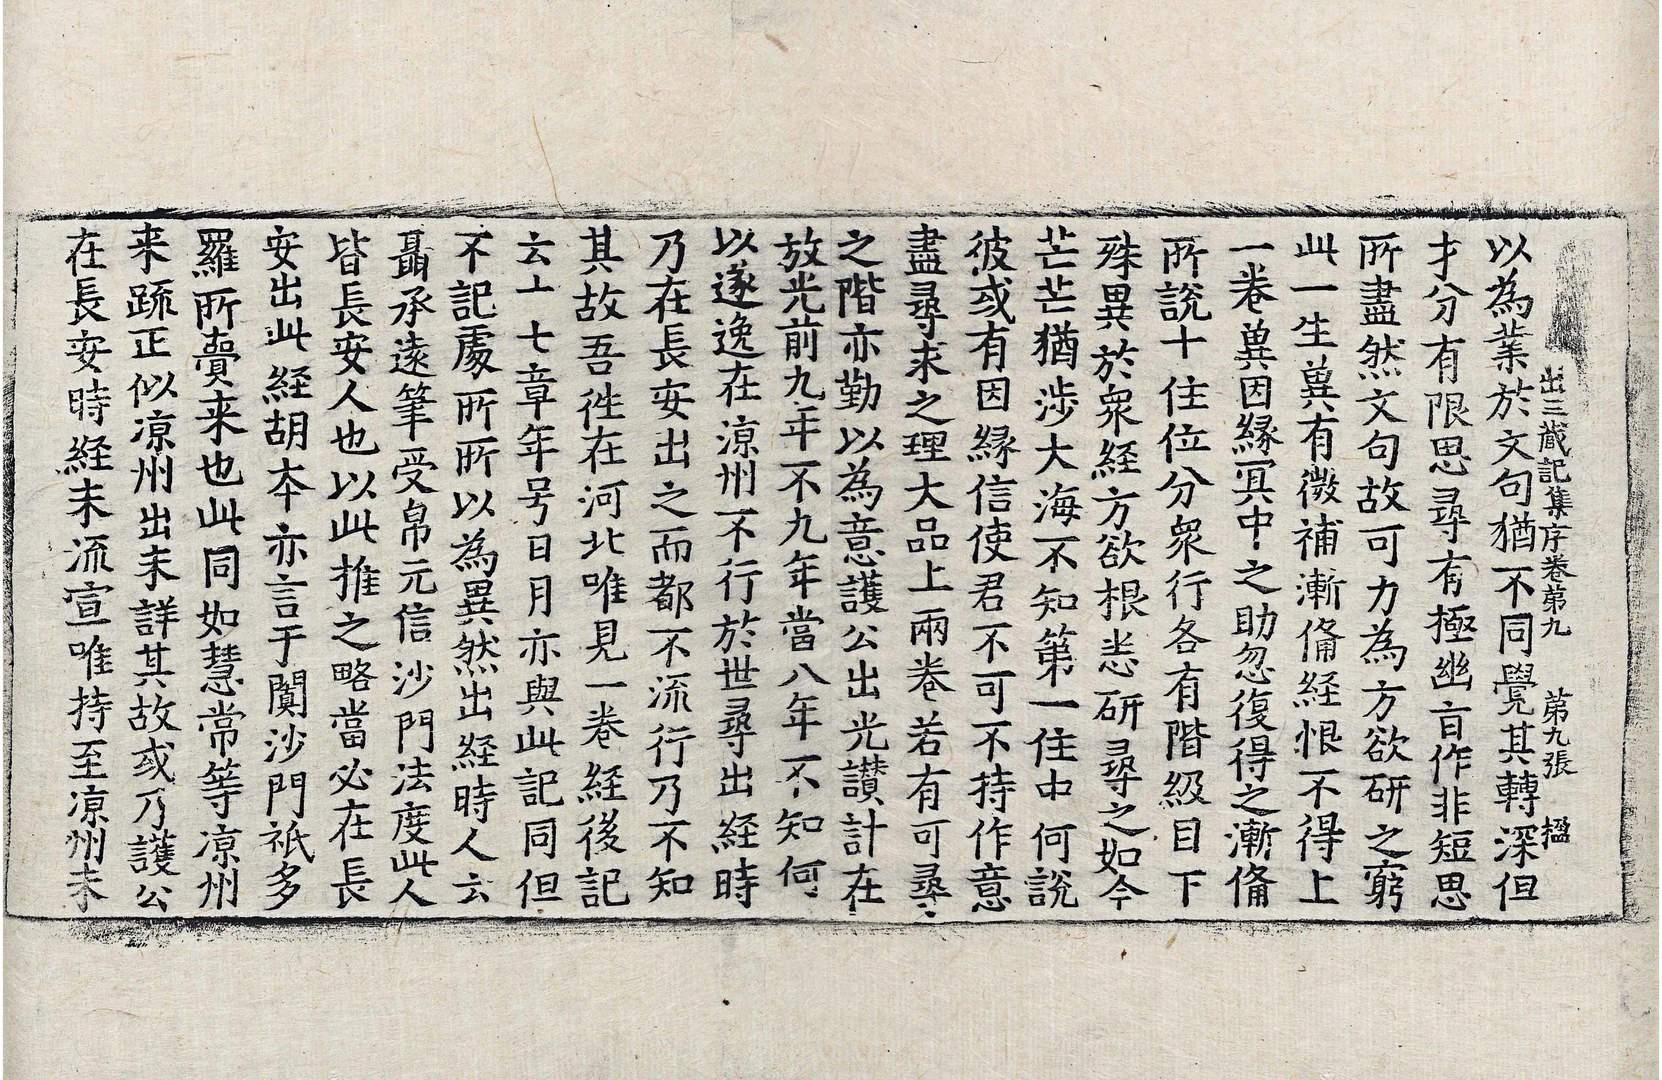 出三藏記集序卷第九　第九張　楹
以為業於文句猶不同覺其轉深但
才分有限思尋有極幽盲作非短思
所盡然文句故可力為方欲研之窮
此一生兾有微補漸俻経恨不得上
一卷兾因縁冥中之助忽復得之漸俻
所說十住位分衆行各有階級目下
殊異於衆経方欲根悉研尋之如今
芒芒猶涉大海不知第一住中何說
彼或有因縁信使君不可不持作意
盡尋求之理大品上兩卷若有可尋
之階亦勤以為意護公出光讃計在
放光前九年不九年當八年不知何
以遂逸在凉州不行於世尋出経時
乃在長安出之而都不流行乃不知
其故吾徃在河北唯見一卷経後記
云十七章年号日月亦與此記同但
不記處所所以為異然出経時人云
聶承遠筆受帛元信沙門法度此人
皆長安人也以此推之略當必在長
安出此経胡夲亦言于闐沙門祇多
羅所賣来也此同如慧常等凉州
来䟽正似凉州出未詳其故或乃護公
在長安時経未流宣唯持至凉州未